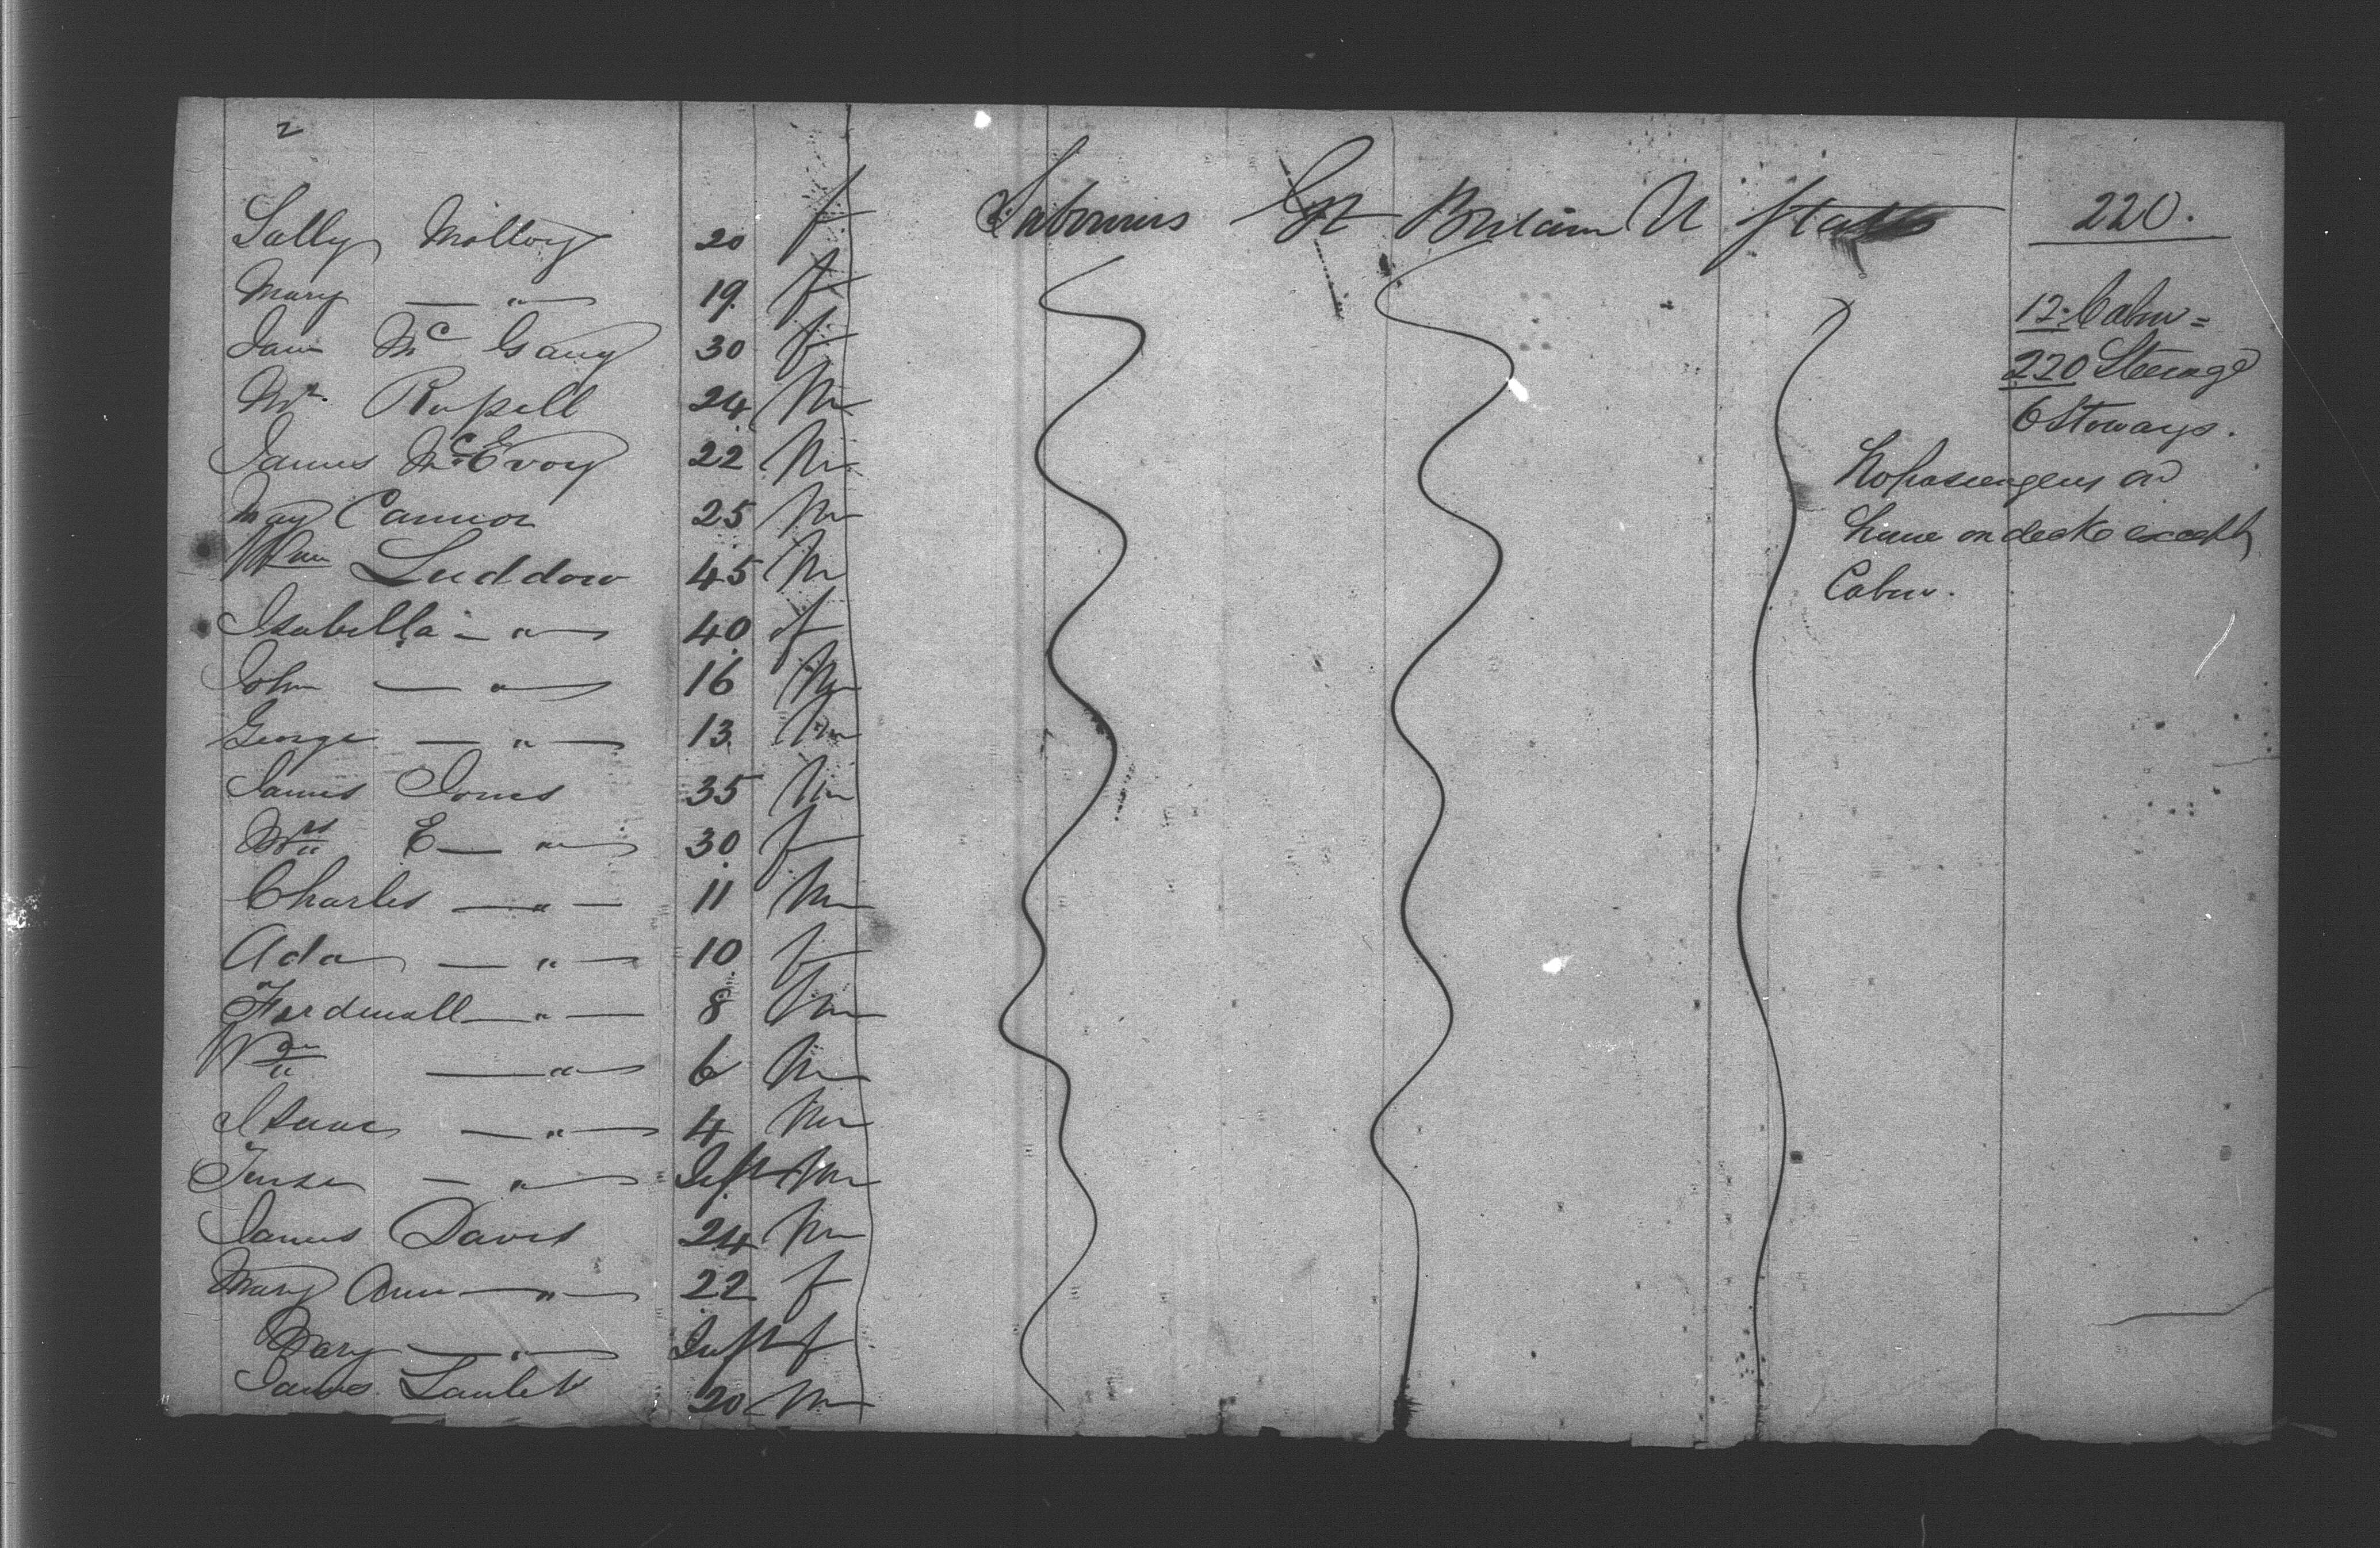 2
Sally Molloy 20 f Labourers Gt Britain U States 220.
Mary — " — 19 f
Jane Mc Gauy 30 f
Mr Russell 24 M
James McEvoy 22 M
May Cannon 25 M
Wm Luddow 45 M
Isabella — " — 40 f
John — " — 16 M
George — " — 13 M
James Jones 35 M
Mrs E — " — 30 f
Charles — " — 11 M
Ada — " — 10 f
Ferdinall — " — 8 M
Wm — " — 6 M
Isaac — " — 4 M
— " — Inft M
James Davis 24 M
Mary Ann — " — 22 f
Mary — " — Inft f
James 20 M
12 Cabin =
220 Steerage
6 Stoways.
No passengers on
on deck except
Cabin.